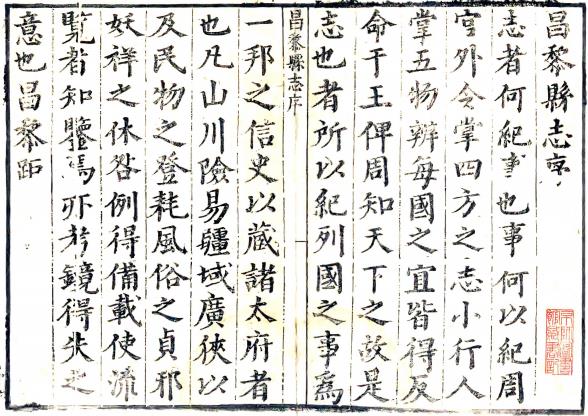 昌黎縣志序
志者何紀事也事何以紀周
官外令掌四方之志小行人
掌五物辨每國之宜皆得反
命于王俾周知天下之故是
志也者所以紀列國之事為
昌黎縣志序
一邦之信史以藏諸太府者
也凡山川險易疆域廣狹以
及民物之登耗風俗之貞邪
妖祥之休咎例得備載使流
覧者知鑒焉亦考鏡得失之
意也昌黎距